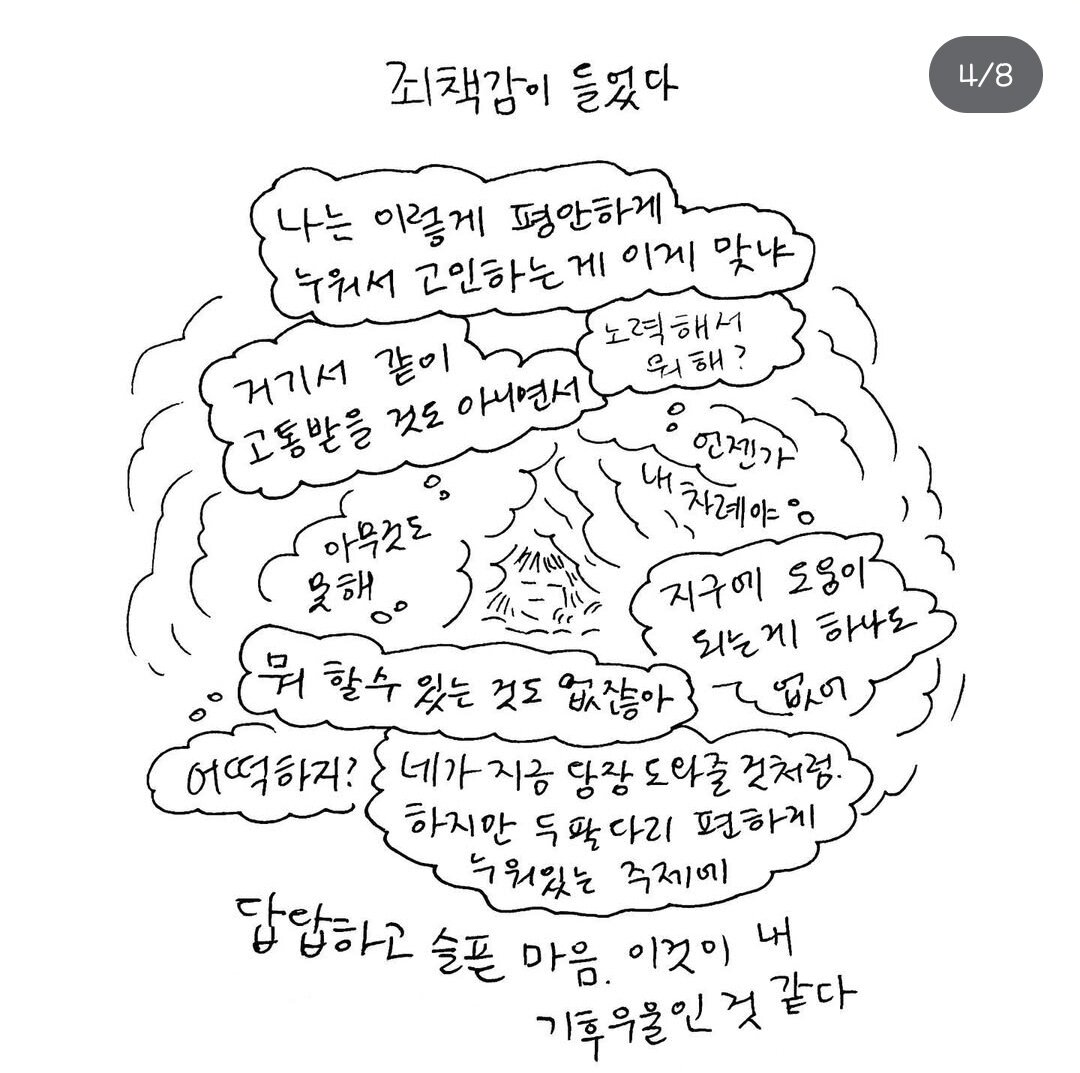 4/8
죄책감이 들었다
나는 이렇게 평안하게
누워서 고민하는게 이게 맞냐
노력해서
뭐해?
거기서 같이
고통받을 것도 아니면서
언젠가
내 차례야
아무것도
못해
지구에 도움이
되는게 하나도
없어
뭐 할수 있는 것도 없잖아
어떡하지?
네가 지금 당장 도와줄 것처럼.
하지만 두 팔다리 편하게
누워있는 주제에
답답하고 슬픈 마음. 이것이 내
기후우울인 것 같다